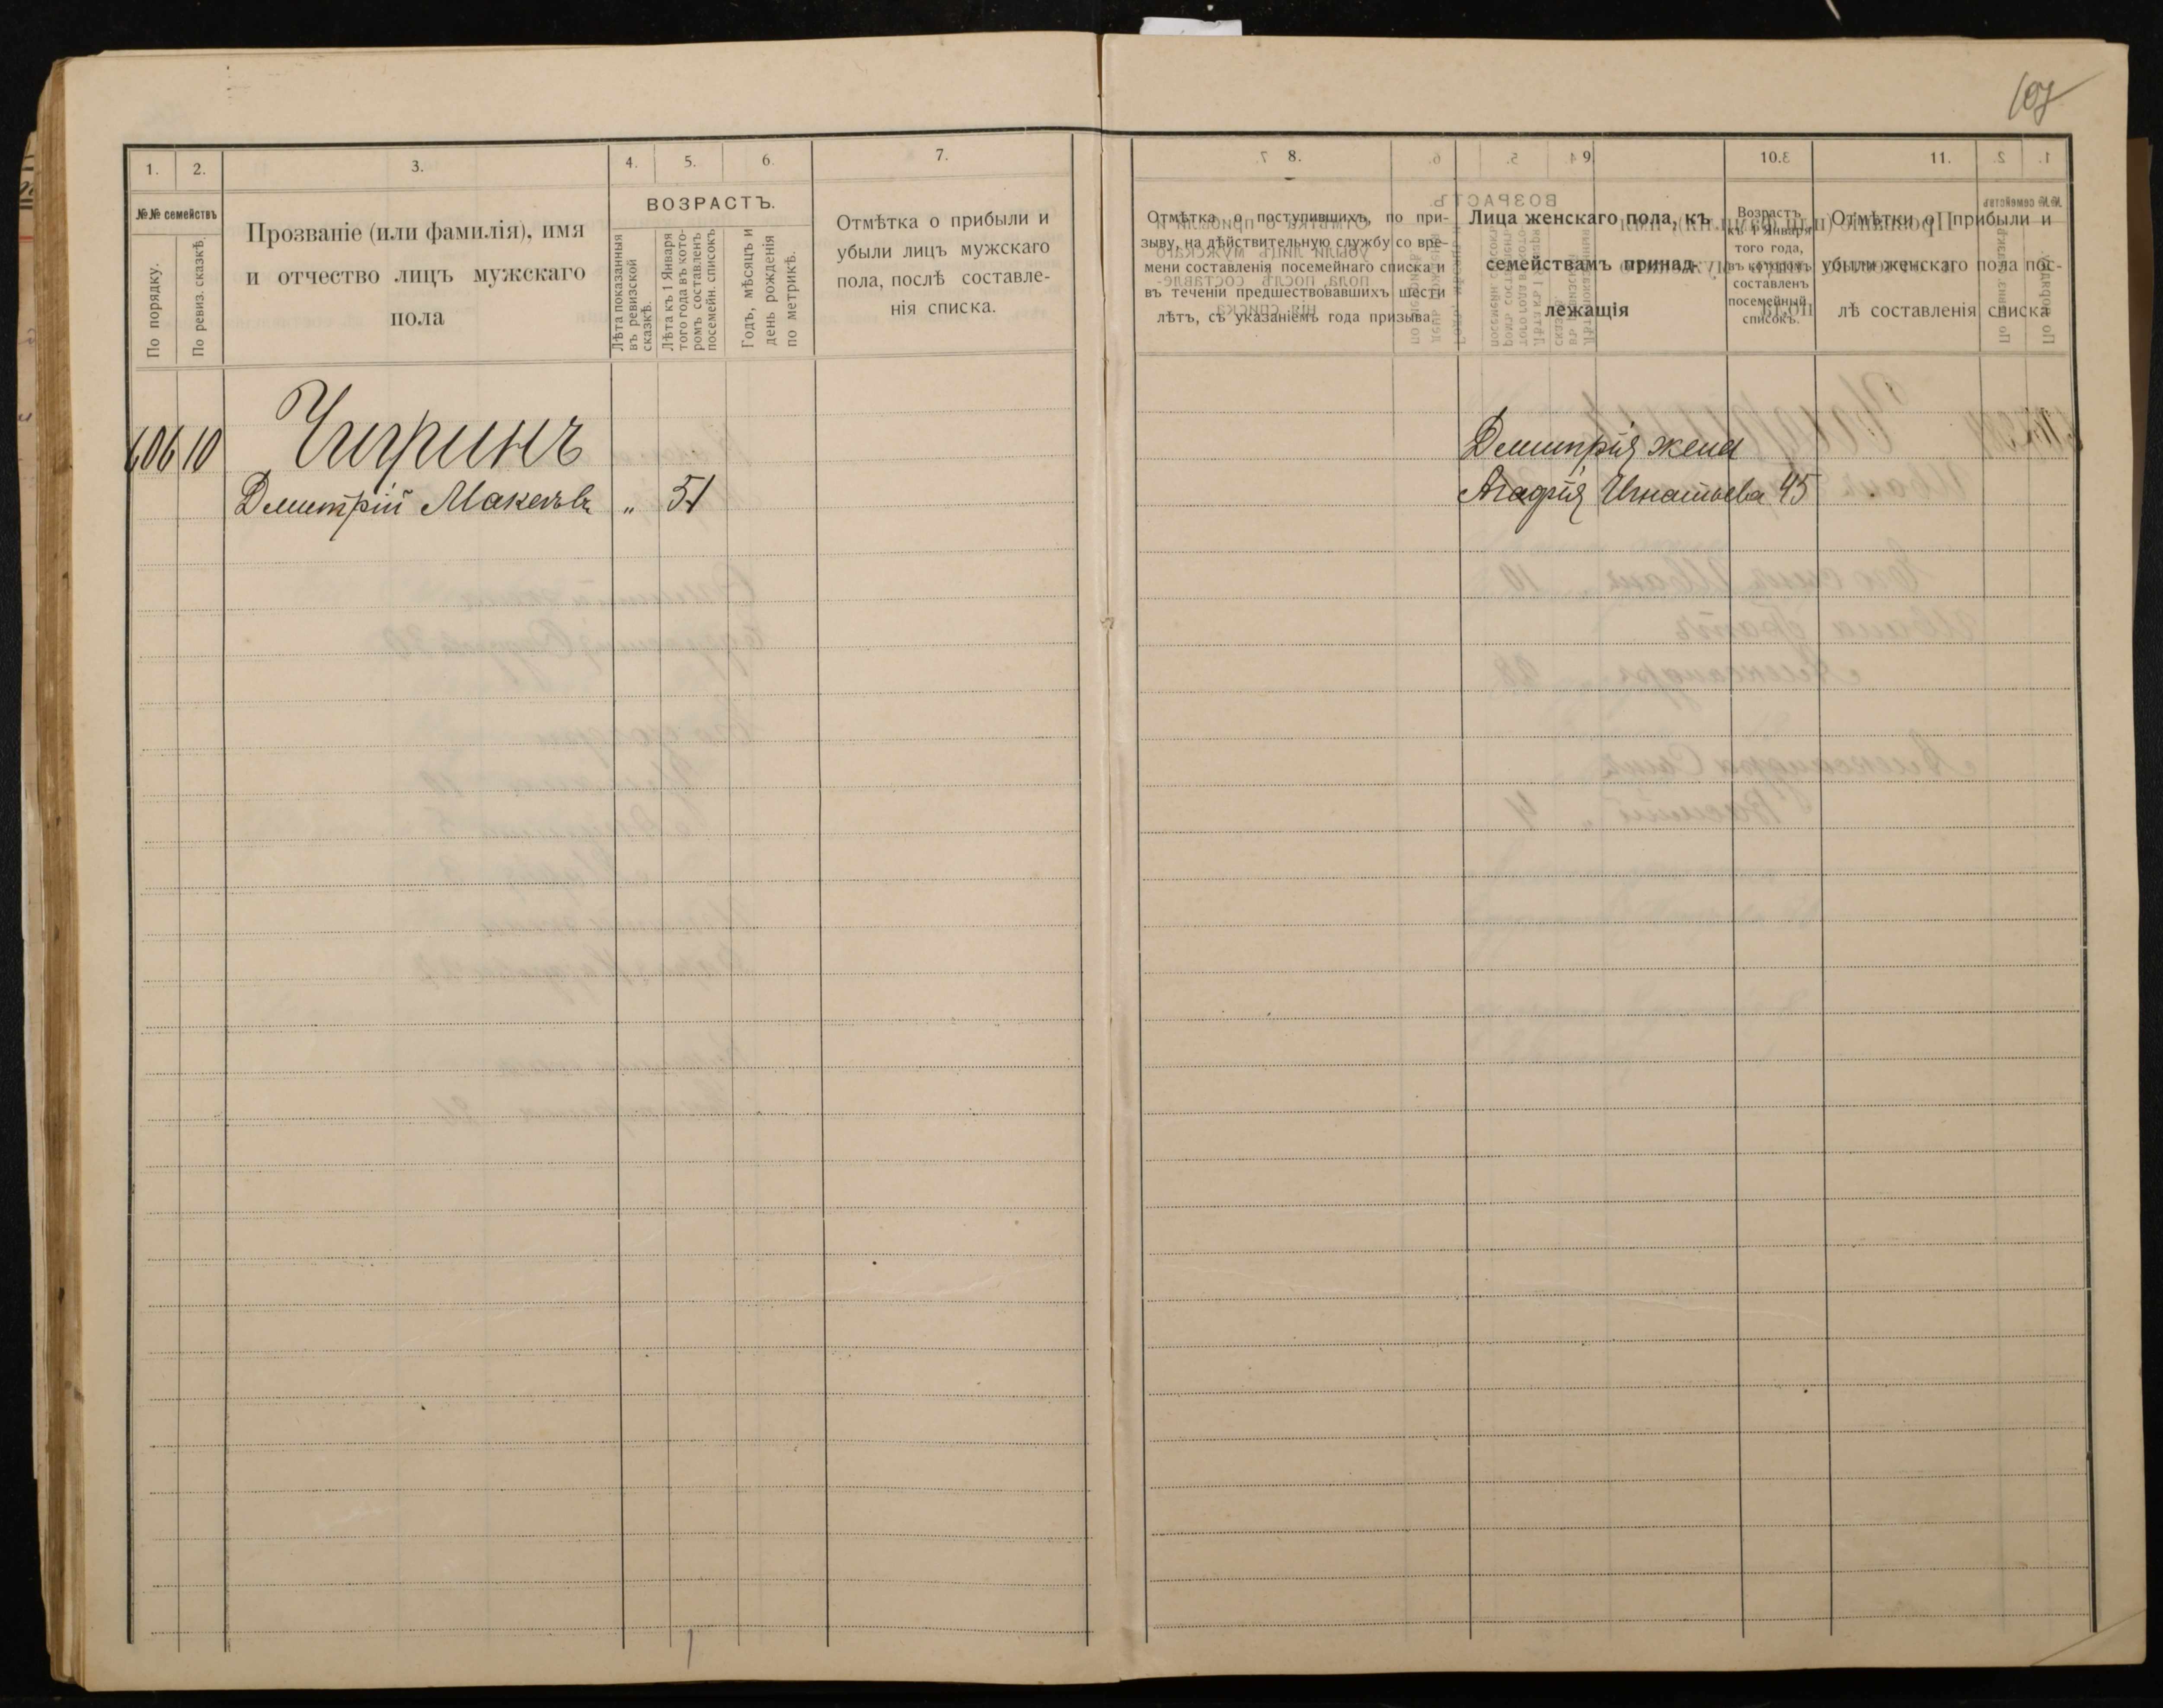 107
1. 2. 3. 4. 5. 6. 7.
№№ семействъ
По порядку.
По ревиз. сказкѣ.
Прозваніе (или фамилія), имя
и отчество лицъ мужскаго
пола
ВОЗРАСТЪ.
Лѣта показанныя
въ ревизской
сказкѣ.
Лѣта къ 1 Января
того года въ кото-
ромъ составленъ
посемейн. списокъ
Годъ, мѣсяцъ и
день рожденія
по метрикѣ.
Отмѣтка о прибыли и
убыли лицъ мужскаго
пола, послѣ составле-
нія списка.
606 10 Чигринъ
Дмитрій „ 51
8. 9 10. 11.
Отмѣтка о поступившихъ, по при-
зыву, на дѣйствительную службу со вре-
мени составленія посемейнаго списка и
въ теченіи предшествовавшихъ шести
лѣтъ, съ указаніемъ года призыва
Лица женскаго пола, къ
семействамъ принад-
лежащія
Возрастъ
къ 1 Января
того года,
въ которомъ
составленъ
посемейный
списокъ.
Отмѣтки о прибыли и
убыли женскаго пола пос-
лѣ составленія списка
Дмитрія жена
Агафія Игнатьева 45